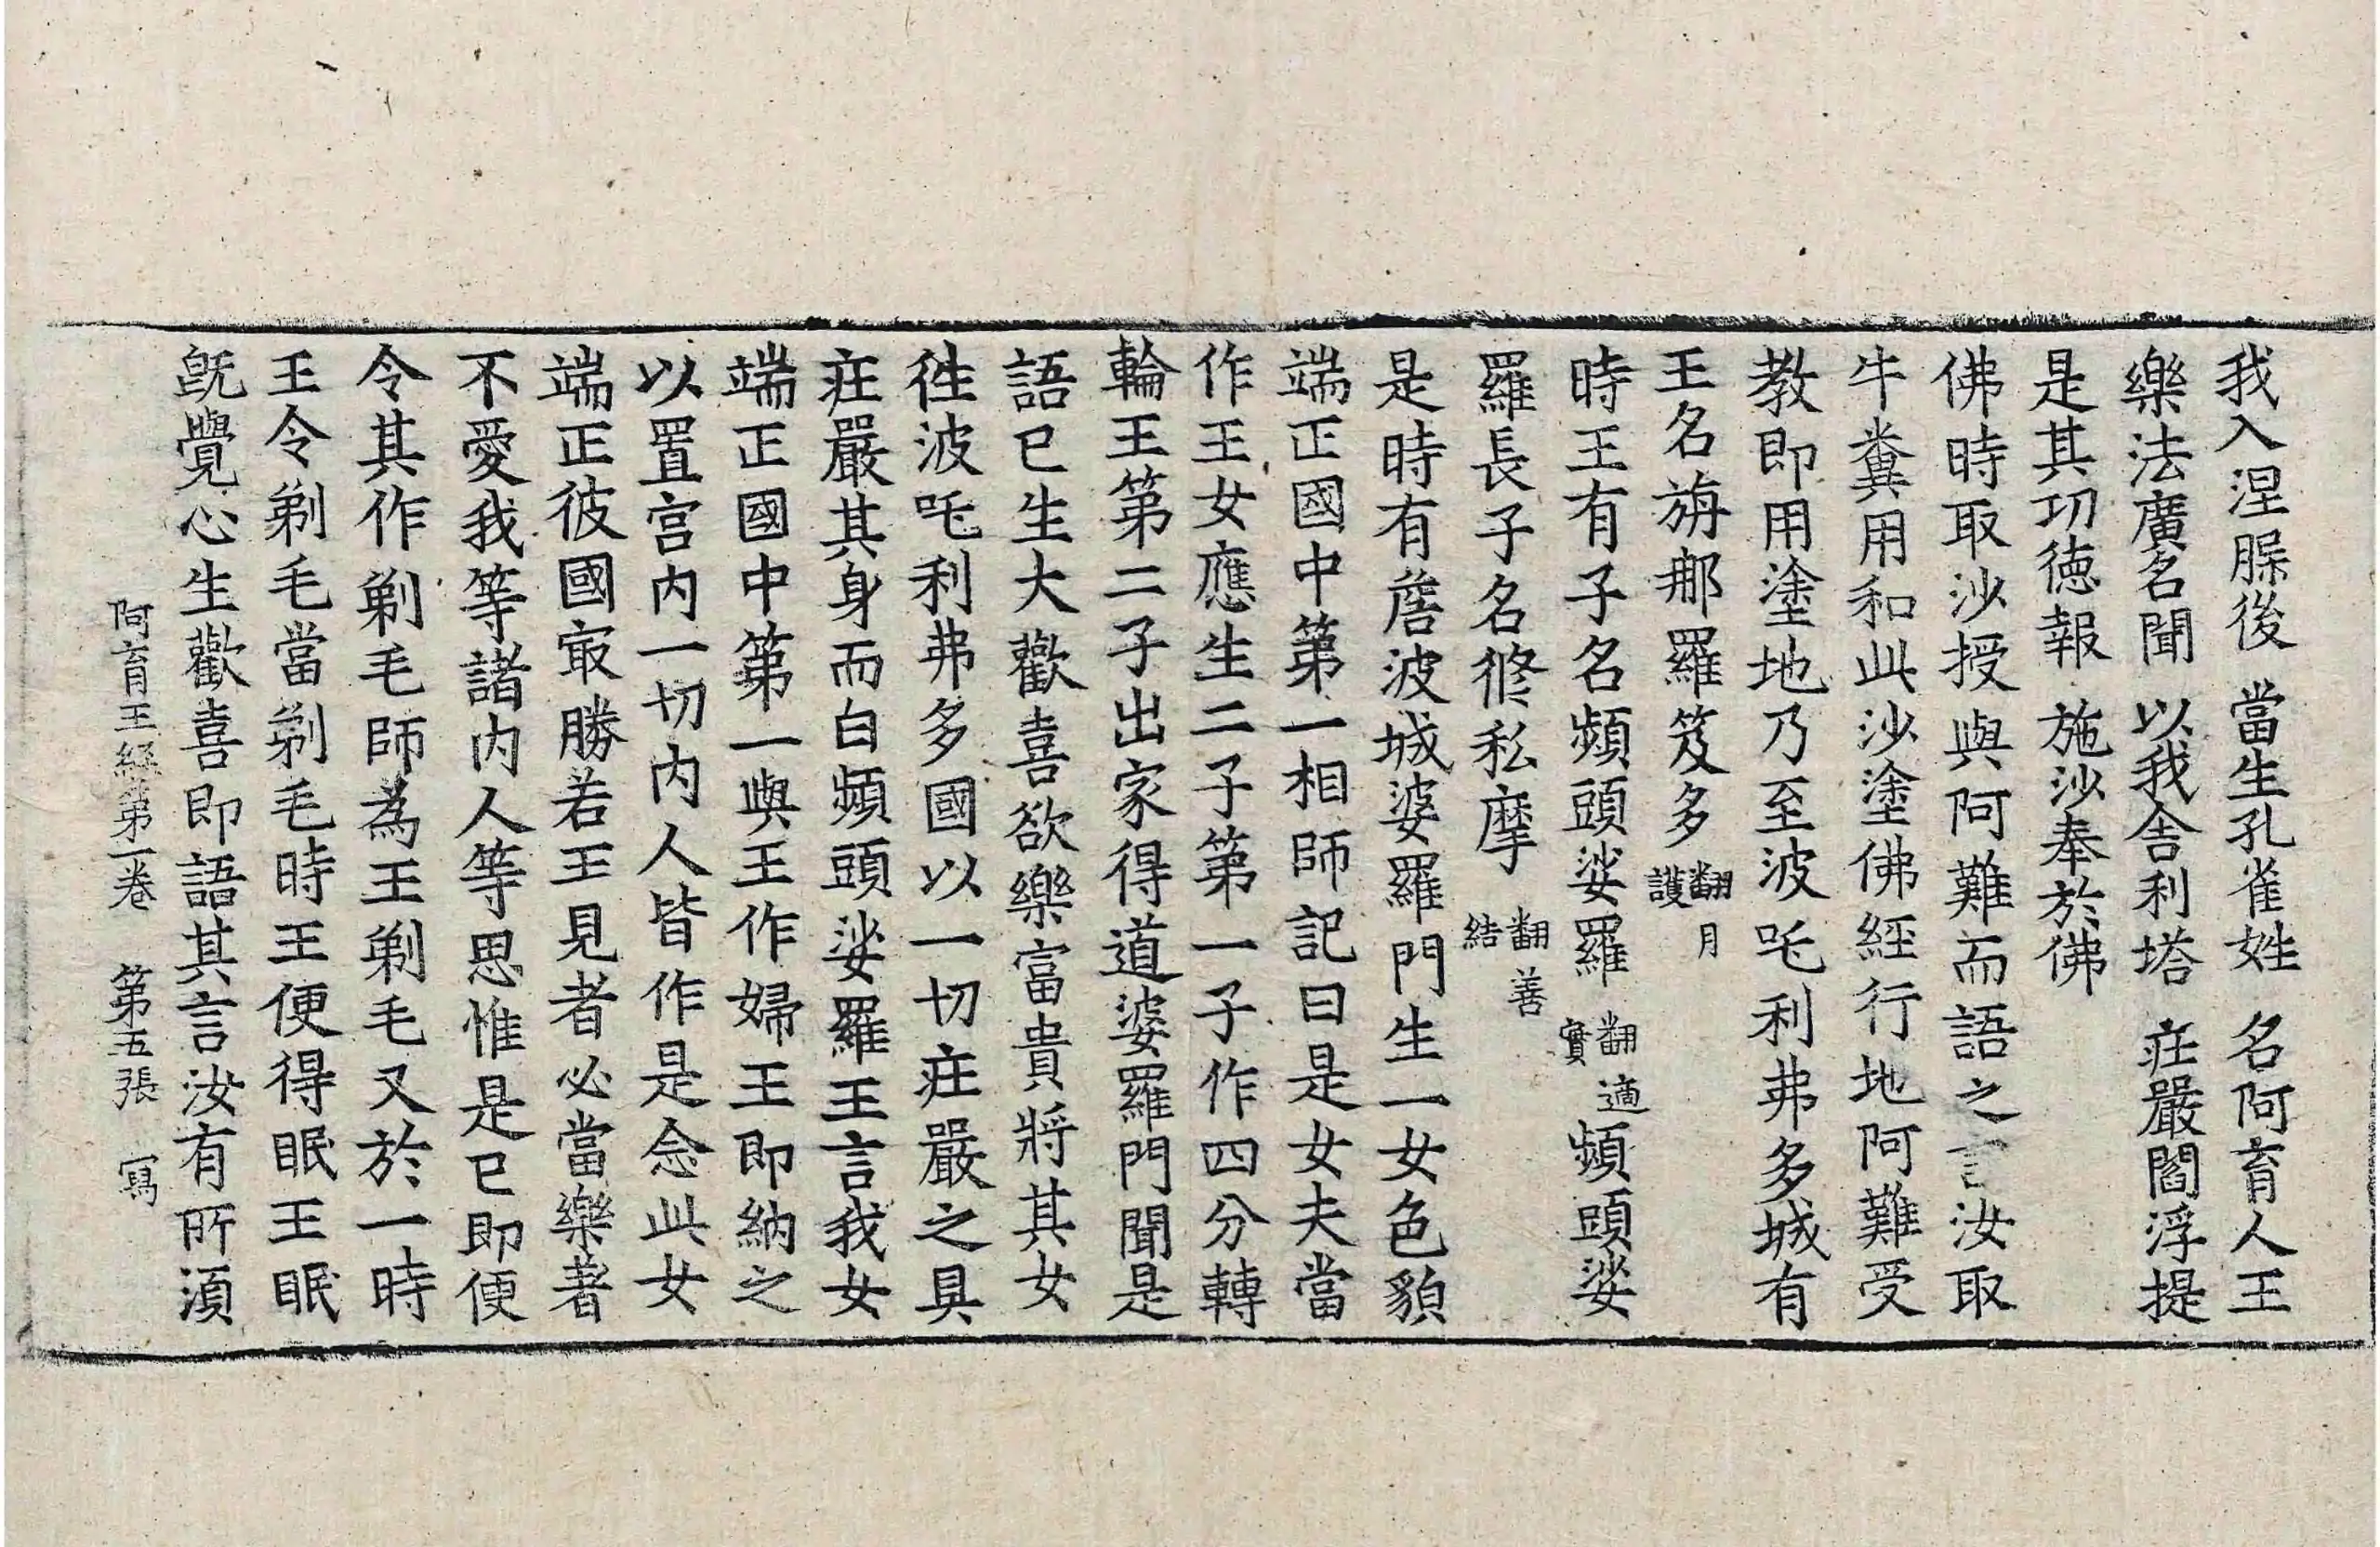 我入涅脲後 當生孔雀姓 名阿育人王
樂法廣名聞 以我舍利塔 庄嚴閻浮提
是其功徳報 施沙奉於佛
佛時取沙授與阿難而語之言汝取
牛糞用和此沙塗佛經行地阿難受
教即用塗地乃至波吒利弗多城有
王名旃那羅笈多翻月護
時王有子名頻頭娑羅翻適實頻頭娑
羅長子名修私摩翻善結
是時有詹波城婆羅門生一女色貌
端正國中第一相師記曰是女夫當
作王女應生二子第一子作四分轉
輪王第二子出家得道婆羅門聞是
語已生大歡喜欲樂富貴將其女
徃波吒利弗多國以一切庄嚴之具
庄嚴其身而白頻頭娑羅王言我女
端正國中第一與王作婦王即納之
以置宫内一切内人皆作是念此女
端正彼國㝡勝若王見者必當樂著
不愛我等諸内人等思惟是已即便
令其作剃毛師為王剃毛又於一時
王令剃毛當剃毛時王便得眠王眠
既覺心生歡喜即語其言汝有所須
阿育王經第一卷 第五張 寫